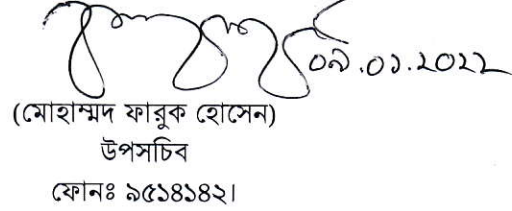 ০৯.০১.২০২২
(মোহাম্মদ ফারুক হোসেন)
উপসচিব
ফোনঃ ৯৫১৪১৪২।